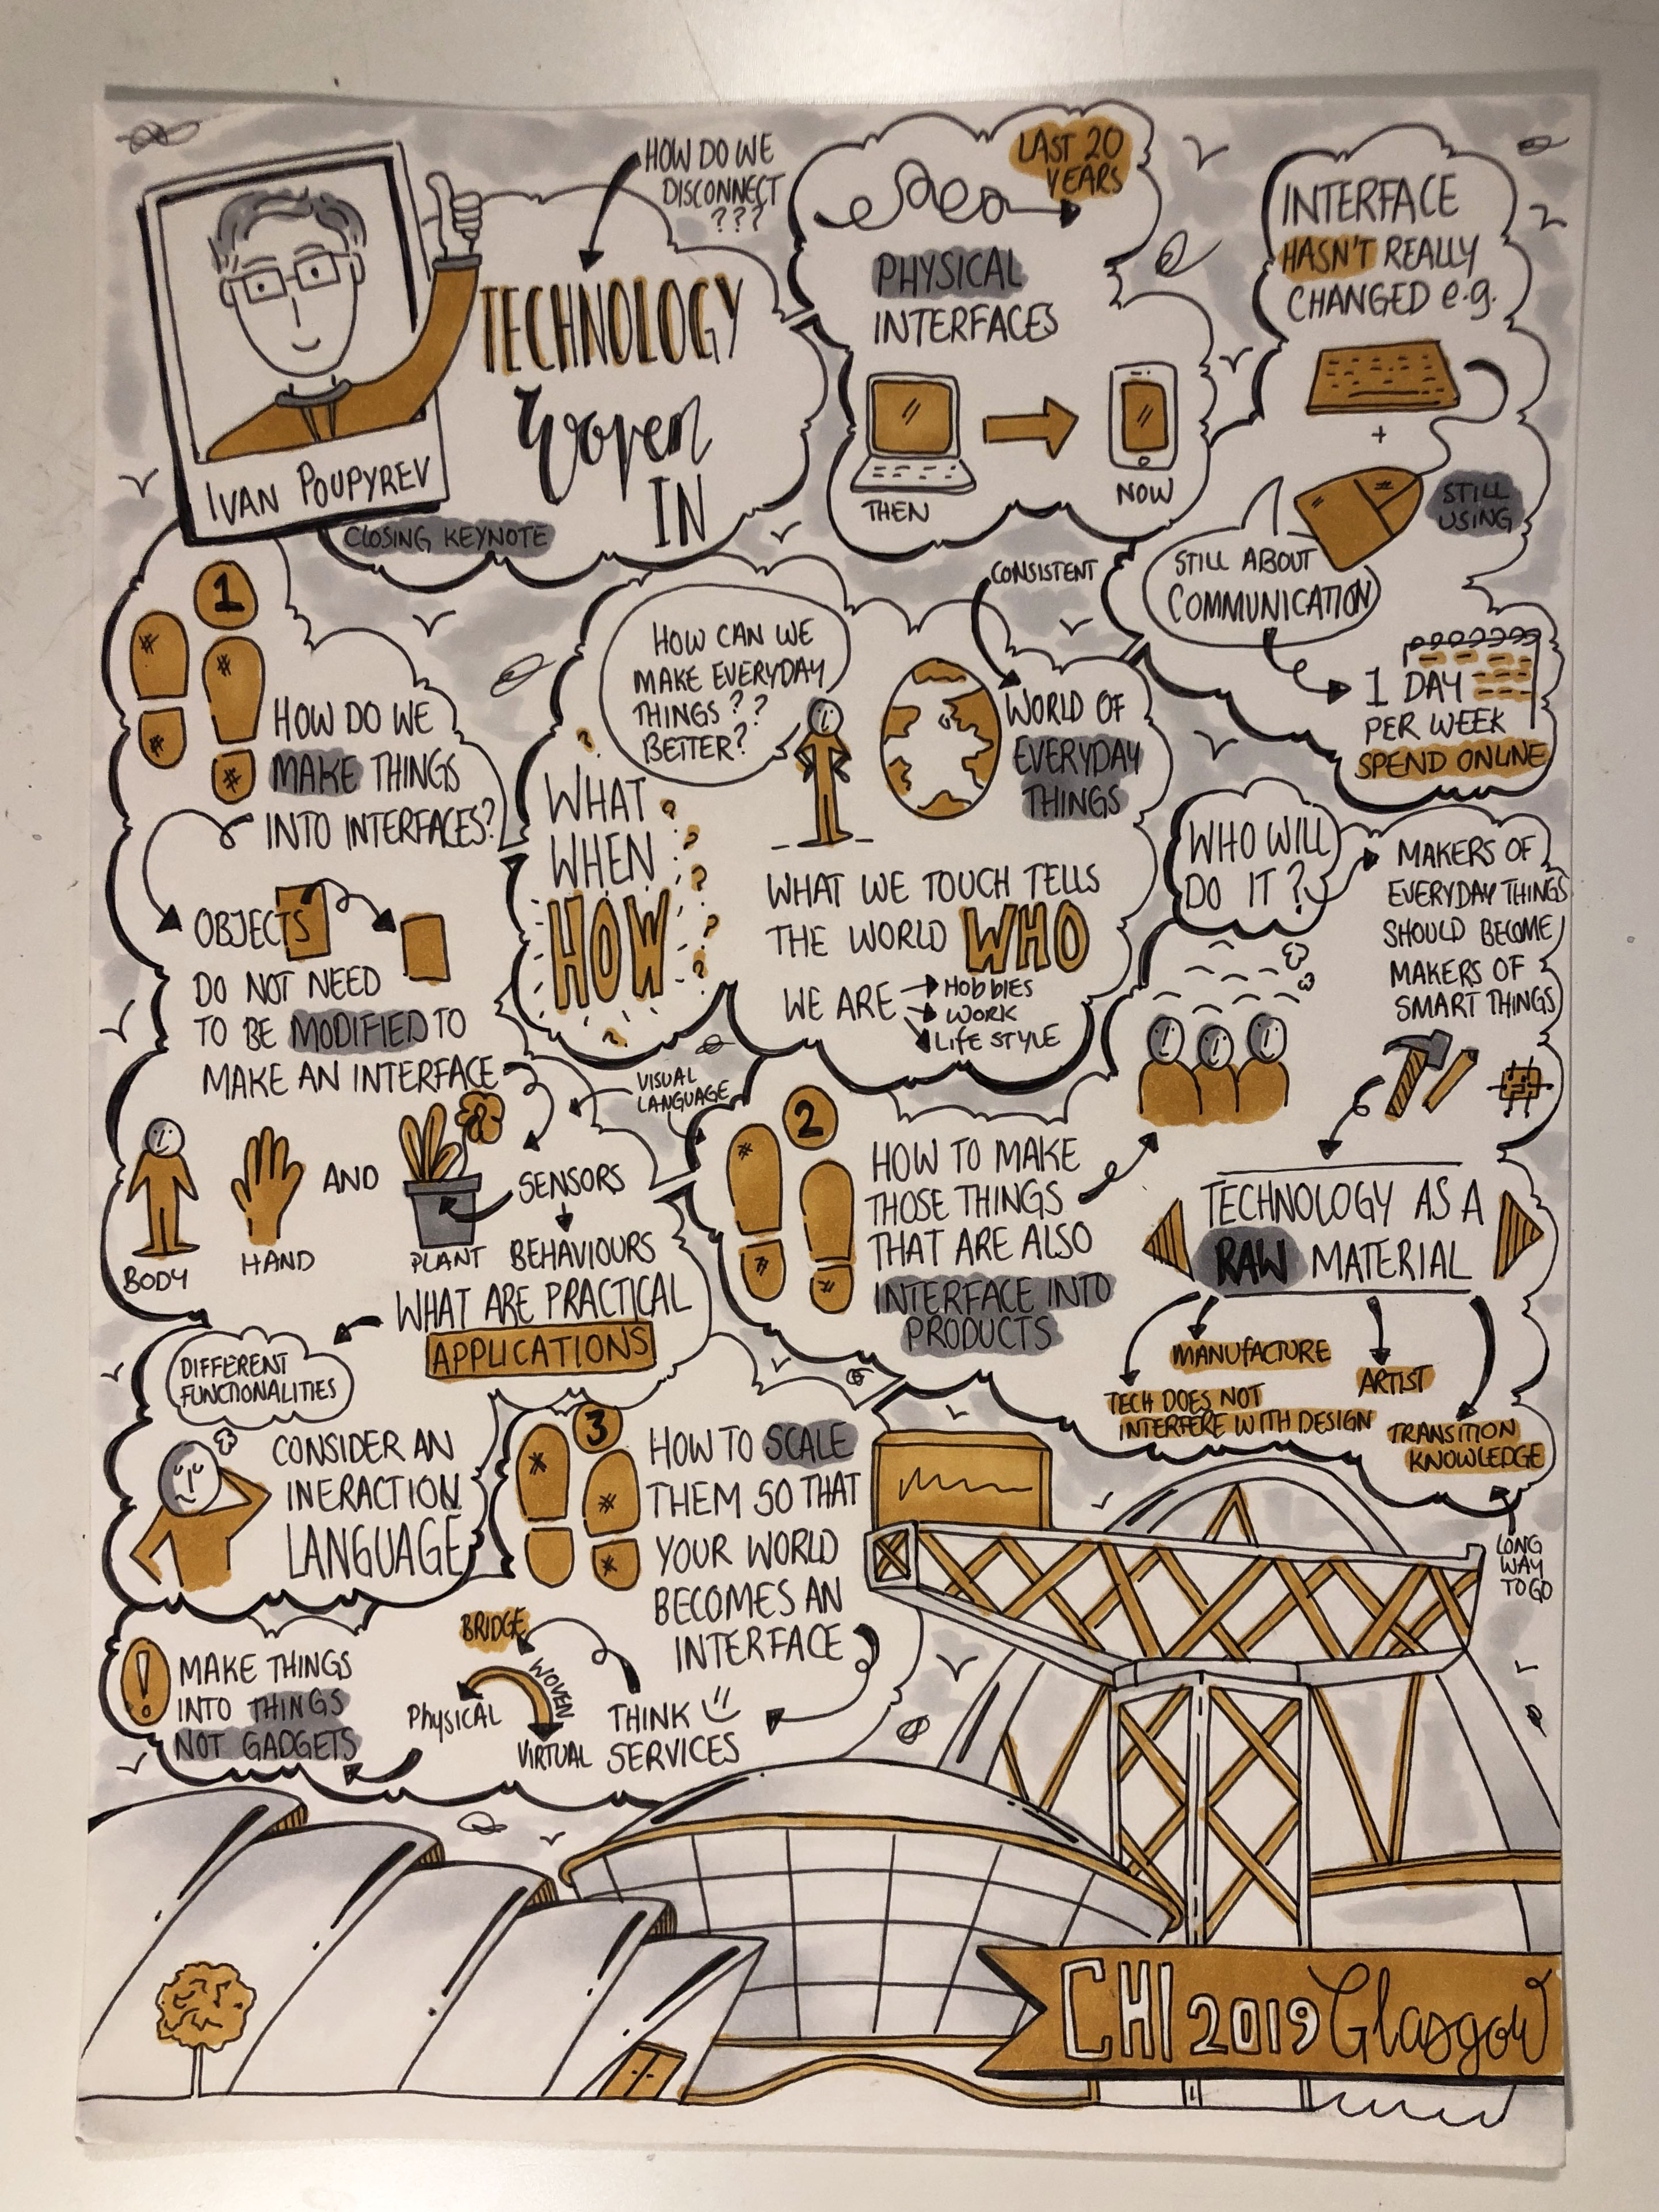 HOW DO WE
DISCONNECT
???
TECHNOLOGY
Woven
IN
IVAN POUPYREV
CLOSING KEYNOTE
LAST 20
YEARS
PHYSICAL
INTERFACES
THEN
NOW
INTERFACE
HASN'T REALLY
CHANGED e.g.
+
STILL
USING
STILL ABOUT
COMMUNICATION
1 DAY
PER WEEK
SPEND ONLINE
1
HOW DO WE
MAKE THINGS
INTO INTERFACES?
OBJECTS
DO NOT NEED
TO BE MODIFIED TO
MAKE AN INTERFACE
BODY
HAND
AND
PLANT
SENSORS
BEHAVIOURS
WHAT ARE PRACTICAL
APPLICATIONS
DIFFERENT
FUNCTIONALITIES
CONSIDER AN
INERACTION
LANGUAGE
HOW CAN WE
MAKE EVERYDAY
THINGS ??
BETTER?
WHAT
WHEN
HOW
CONSISTENT
WORLD OF
EVERYDAY
THINGS
WHAT WE TOUCH TELLS
THE WORLD WHO
WE ARE
HOBBIES
WORK
LIFE STYLE
VISUAL
LANGUAGE
WHO WILL
DO IT?
MAKERS OF
EVERYDAY THINGS
SHOULD BECOME
MAKERS OF
SMART THINGS
2
HOW TO MAKE
THOSE THINGS
THAT ARE ALSO
INTERFACE INTO
PRODUCTS
TECHNOLOGY AS A
RAW MATERIAL
MANUFACTURE
TECH DOES NOT
INTERFERE WITH DESIGN
ARTIST
TRANSITION
KNOWLEDGE
LONG
WAY
TO GO
3
HOW TO SCALE
THEM SO THAT
YOUR WORLD
BECOMES AN
INTERFACE
THINK
SERVICES
BRIDGE
WOVEN
PHYSICAL
VIRTUAL
!
MAKE THINGS
INTO THINGS
NOT GADGETS
CHI 2019 Glasgow